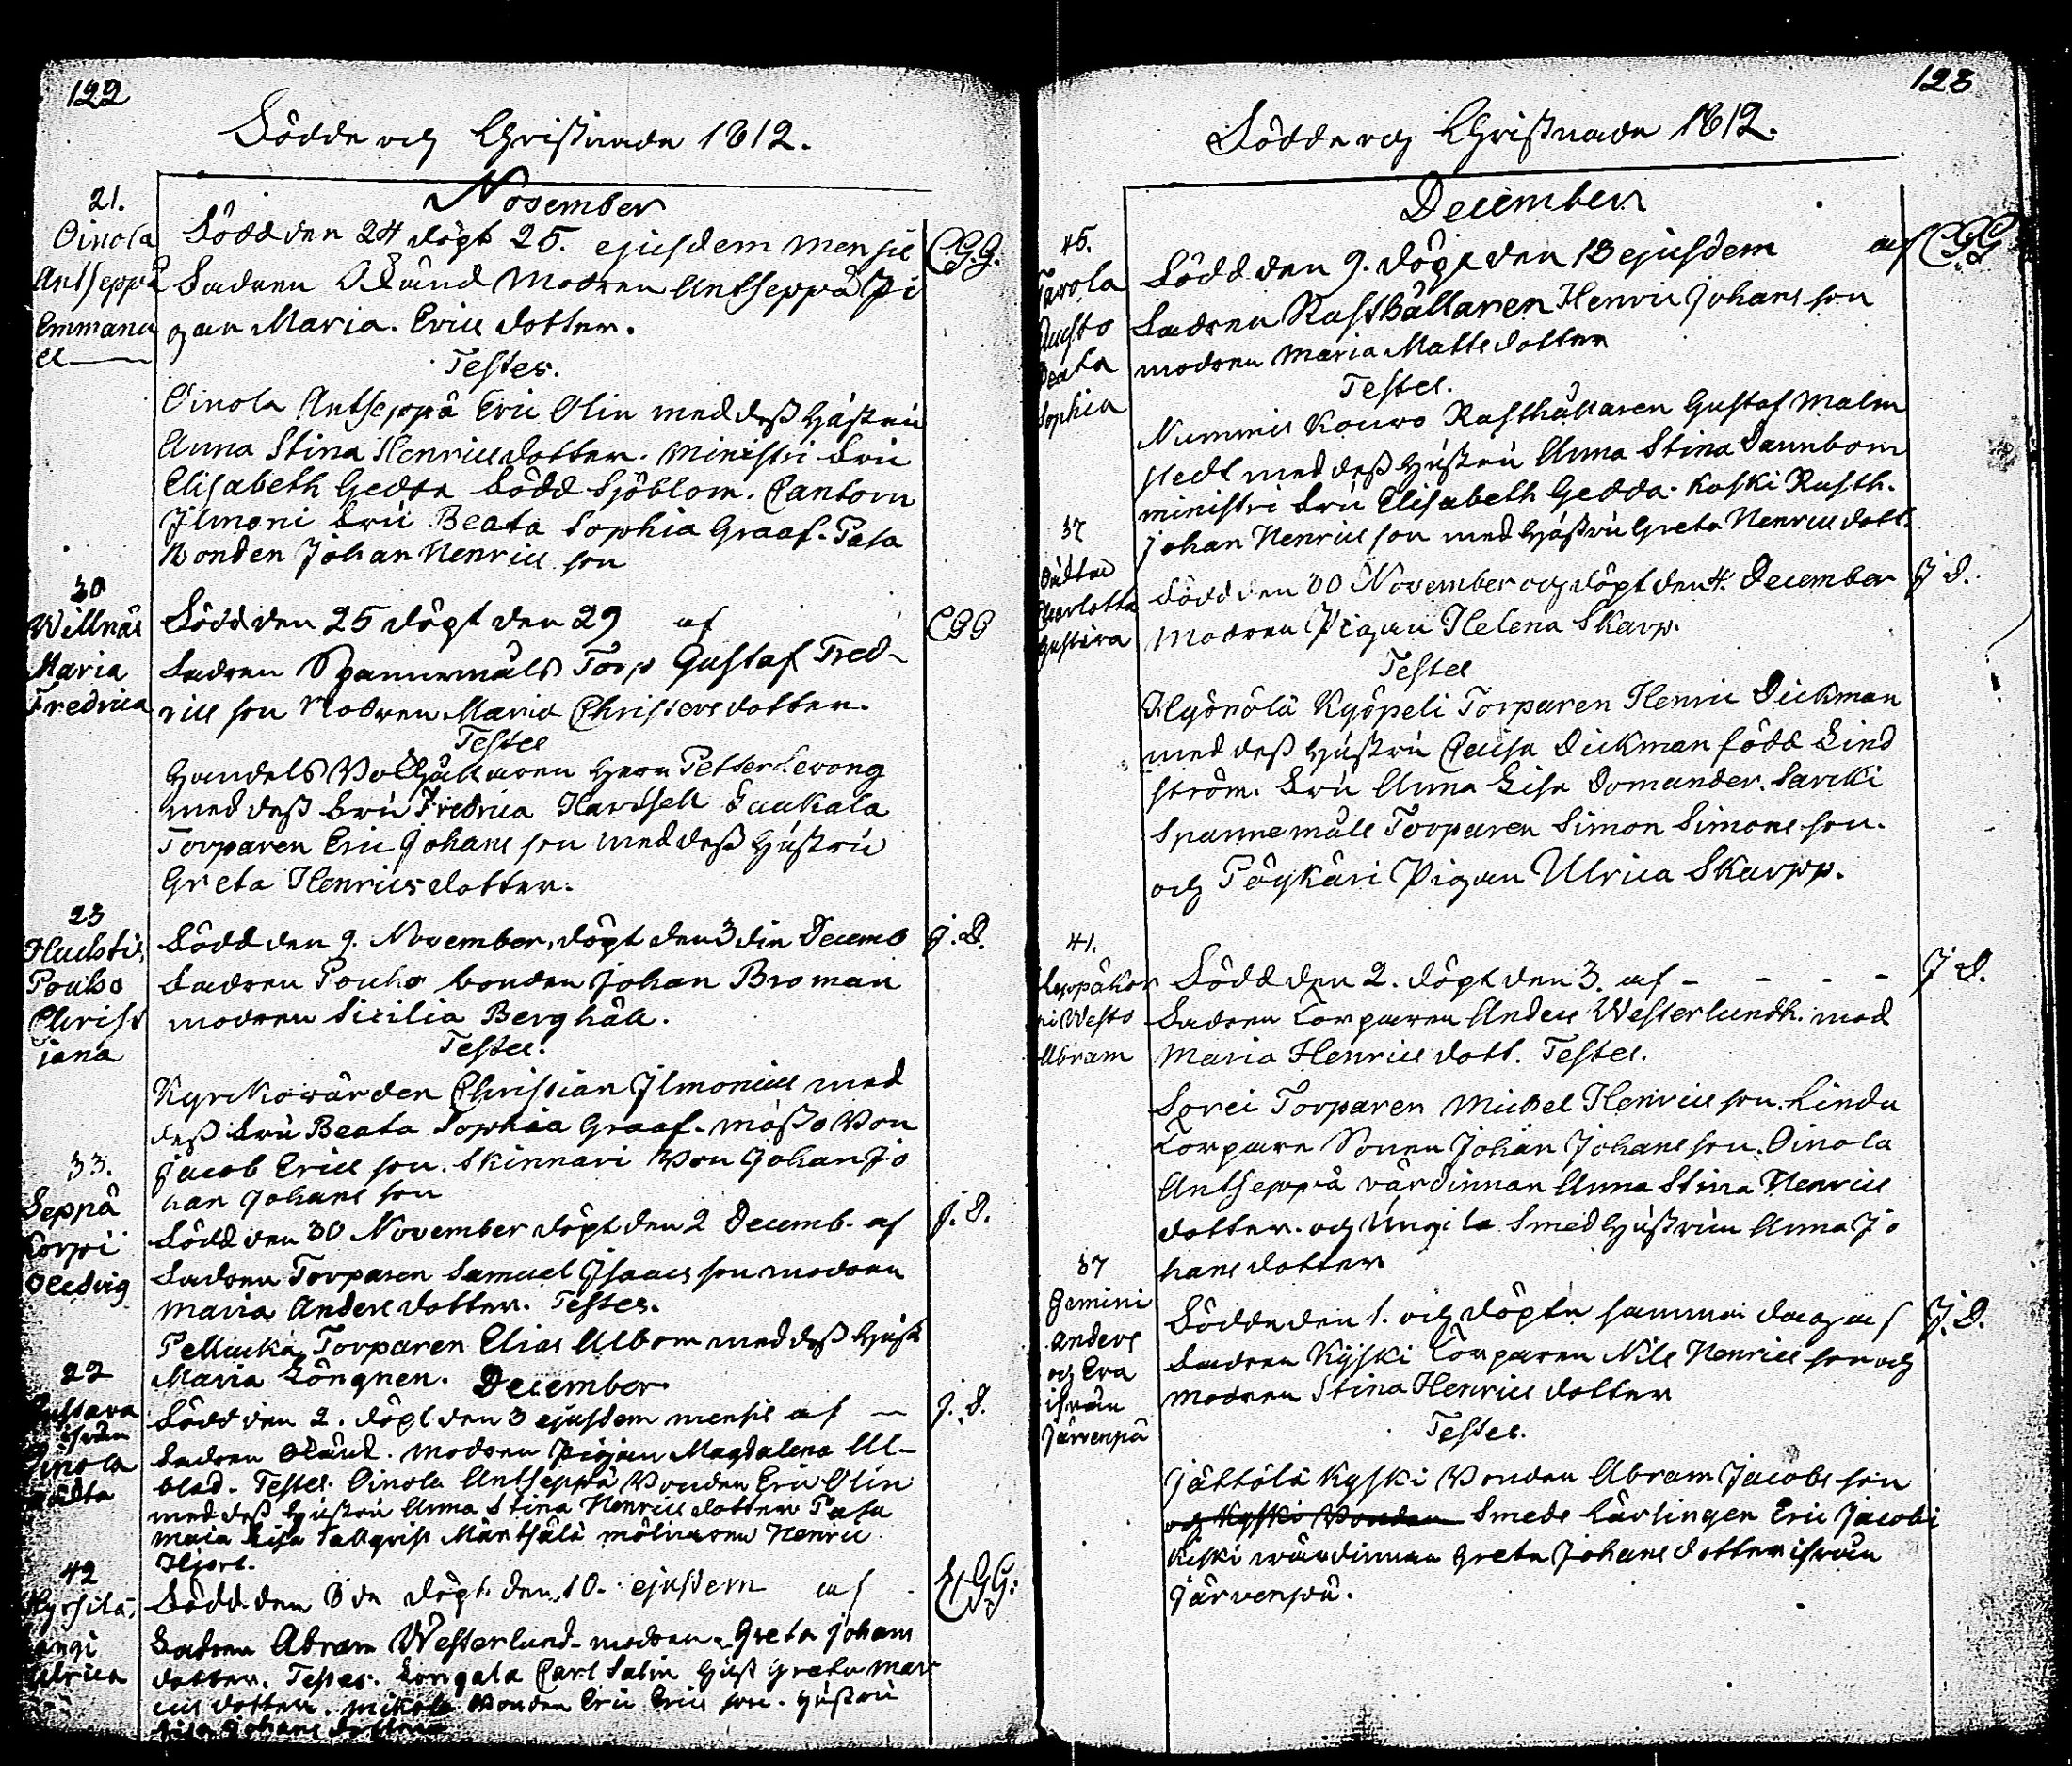 122
Födde och Christnade 1812.
November
21.
Oinola
Antseppä
Emmanu
el
Född den 24 döpt 25. ejusdem mensis
C.G.G.
Fadren Okänd Modren Antseppä Pi
gan Maria Erics dotter.
Testes.
Oinola Antseppä Eric Olin med dess Hustru
Anna Stina Henricsdotter. Ministri Fru
Elisabeth Gedda född Sjöblom. Cantorn
Ilmoni Fru Beata Sophia Graaf. Pasa
Bonden Johan Henrics son
30
Willnäs
Maria
Fredrica
Född den 25 döpt den 29 af
CGG
Fadren Spannemåls Torp Gustaf Fred-
rics son Modren Maria Christersdotter.
Testes
Handels Herr Petter
med dess Fru Fredrica Laukala
Torparen Eric Johans son med dess Hustru
Greta Henricsdotter.
23
Huchtis
Pouho
Christ
iana
Född den 9. November, döpt den 3 din Decemb
J.D.
Fadren Pouho bonden Johan Broman
modren Sicilia Berghäll.
Testes.
Kyrckowärden Christian Ilmonius med
dess Fru Beata Sophia Graaf. Bon
Jacob Erics son. Skinnari Bon Johan Jo
han Johans son
33.
Seppä
Korpi
Hedvig
Född den 30 November döpt den 2 Decemb. af
J.D.
Fadren Torparen Samuel Isaacs son modren
Maria Anders dotter. Testes.
Torparen Elias Albom med dess Hust
Maria Löngren.
December
22
ifrån
Oinola
Född den 2. döpt den 3 ejusdem mensis af
J.D.
Fadren Okänd. modren Pigan Magdalena Al-
blad. Testes. Oinola Antseppä Bonden Eric Olin
med dess Hustru Anna Stina Henrics dotter Pasa
Maja Lisa Tallqvist Mäntsälä mölnaren Henric
Hjort.
42
Hyrsilä
Ulrica
Född den 8 de döpt den 10. ejusdem af
CGG.
Fadren Abram Westerlund modren Greta Johans
dotter. Testes. Carl Salin Hust Greta Mar
cus dotter. Mikola Bonden Eric Erics son. Hustru
Lisa Johans dotter
123
Födde och Christnade 1812.
December
45.
Tavola
Beata
Sophia
Född den 9. döpt den 13 ejusdem af
CGG
Fadren Rusthållaren Henric Johans son
modren Maria Matts dotter
Testes.
Nummis Kouvo Rusthållaren Gustaf Malm
stedt med dess Hustru Anna Stina Dannbom
ministri Fru Elisabeth Gedda. Koski Rusth.
Johan Henrics son med Hustru Greta Henrics dott.
37
Oäkta
Charlotta
Gustava
Född den 30 November och döpt den 4. December
J D.
Modren Pigan Helena Skarp.
Testes
Hyönölä Kyöpeli Torparen Henric Dickman
med dess Hustru Caisa Dickman född Lind
ström. Fru Anna Lisa Domander. Sarcki
Spannemåls Torparen Simon Simons son.
och Pöykäri Pigan Ulrica Skarpp.
41.
Leppäkor
pi Westo
Abram
Född den 2. döpt den 3. af - - - -
J D.
Fadren Torparen Anders Westerlundh. mod
Maria Henrics dott. Testes.
Torparen Michel Henrics son. Lindu
Torpare Sonen Johan Johans son. Oinola
Antseppä värdinnan Anna Stina Henrics
dotter. och Smed Hustrun Anna Jo
hans dotter
37
Gemini
Anders
och Eva
ifrån
Järvenpä
Födde den 1. och döpte samma dag af
J.D.
Fadren Kyski Torparen Nils Henrics son och
Modren Stina Henrics dotter
Testes.
Jättölä Kyski Bonden Abram Jacobs son
och Kyski Bonden Smeds Lärlingen Eric Jacobs
Kiski wärdinnan Greta Johans dotter ifrån
Järvenpä.